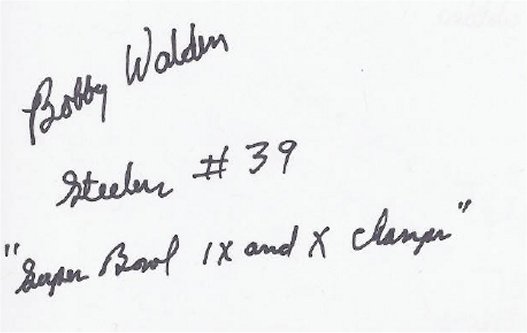 Bobby Walden
Steelers # 39
"Super Bowl IX and X Champs"